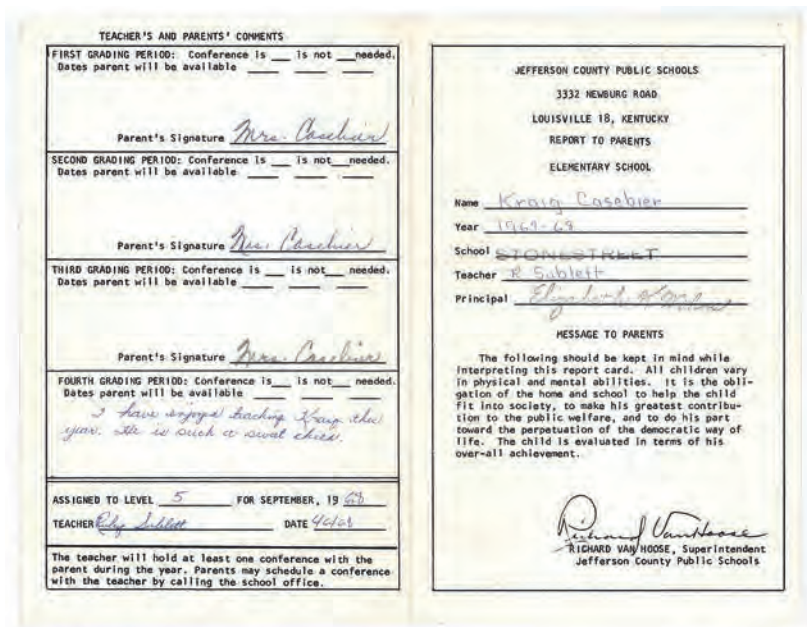 TEACHER'S AND PARENTS' COMMENTS
FIRST GRADING PERIOD: Conference is ___ is not ___ needed.
Dates parent will be available ___ ___ ___
Parent's Signature Mrs. Casebier
SECOND GRADING PERIOD: Conference is ___ is not ___ needed.
Dates parent will be available ___ ___ ___
Parent's Signature Mrs. Casebier
THIRD GRADING PERIOD: Conference is ___ is not ___ needed.
Dates parent will be available ___ ___ ___
Parent's Signature Mrs. Casebier
FOURTH GRADING PERIOD: Conference is ___ is not ___ needed.
Dates parent will be available ___ ___ ___
I have enjoyed teaching Kraig this
year. He is such a sweet child.
ASSIGNED TO LEVEL 5 FOR SEPTEMBER, 19 68
TEACHER Sublett DATE
The teacher will hold at least one conference with the
parent during the year. Parents may schedule a conference
with the teacher by calling the school office.
JEFFERSON COUNTY PUBLIC SCHOOLS
3332 NEWBURG ROAD
LOUISVILLE 18, KENTUCKY
REPORT TO PARENTS
ELEMENTARY SCHOOL
Name Kraig Casebier
Year 1967-68
School STONESTREET
Teacher R Sublett
Principal Elizabeth
MESSAGE TO PARENTS
The following should be kept in mind while
interpreting this report card. All children vary
in physical and mental abilities. It is the obli-
gation of the home and school to help the child
fit into society, to make his greatest contribu-
tion to the public welfare, and to do his part
toward the perpetuation of the democratic way of
life. The child is evaluated in terms of his
over-all achievement.
Richard VanHoose
RICHARD VAN HOOSE, Superintendent
Jefferson County Public Schools